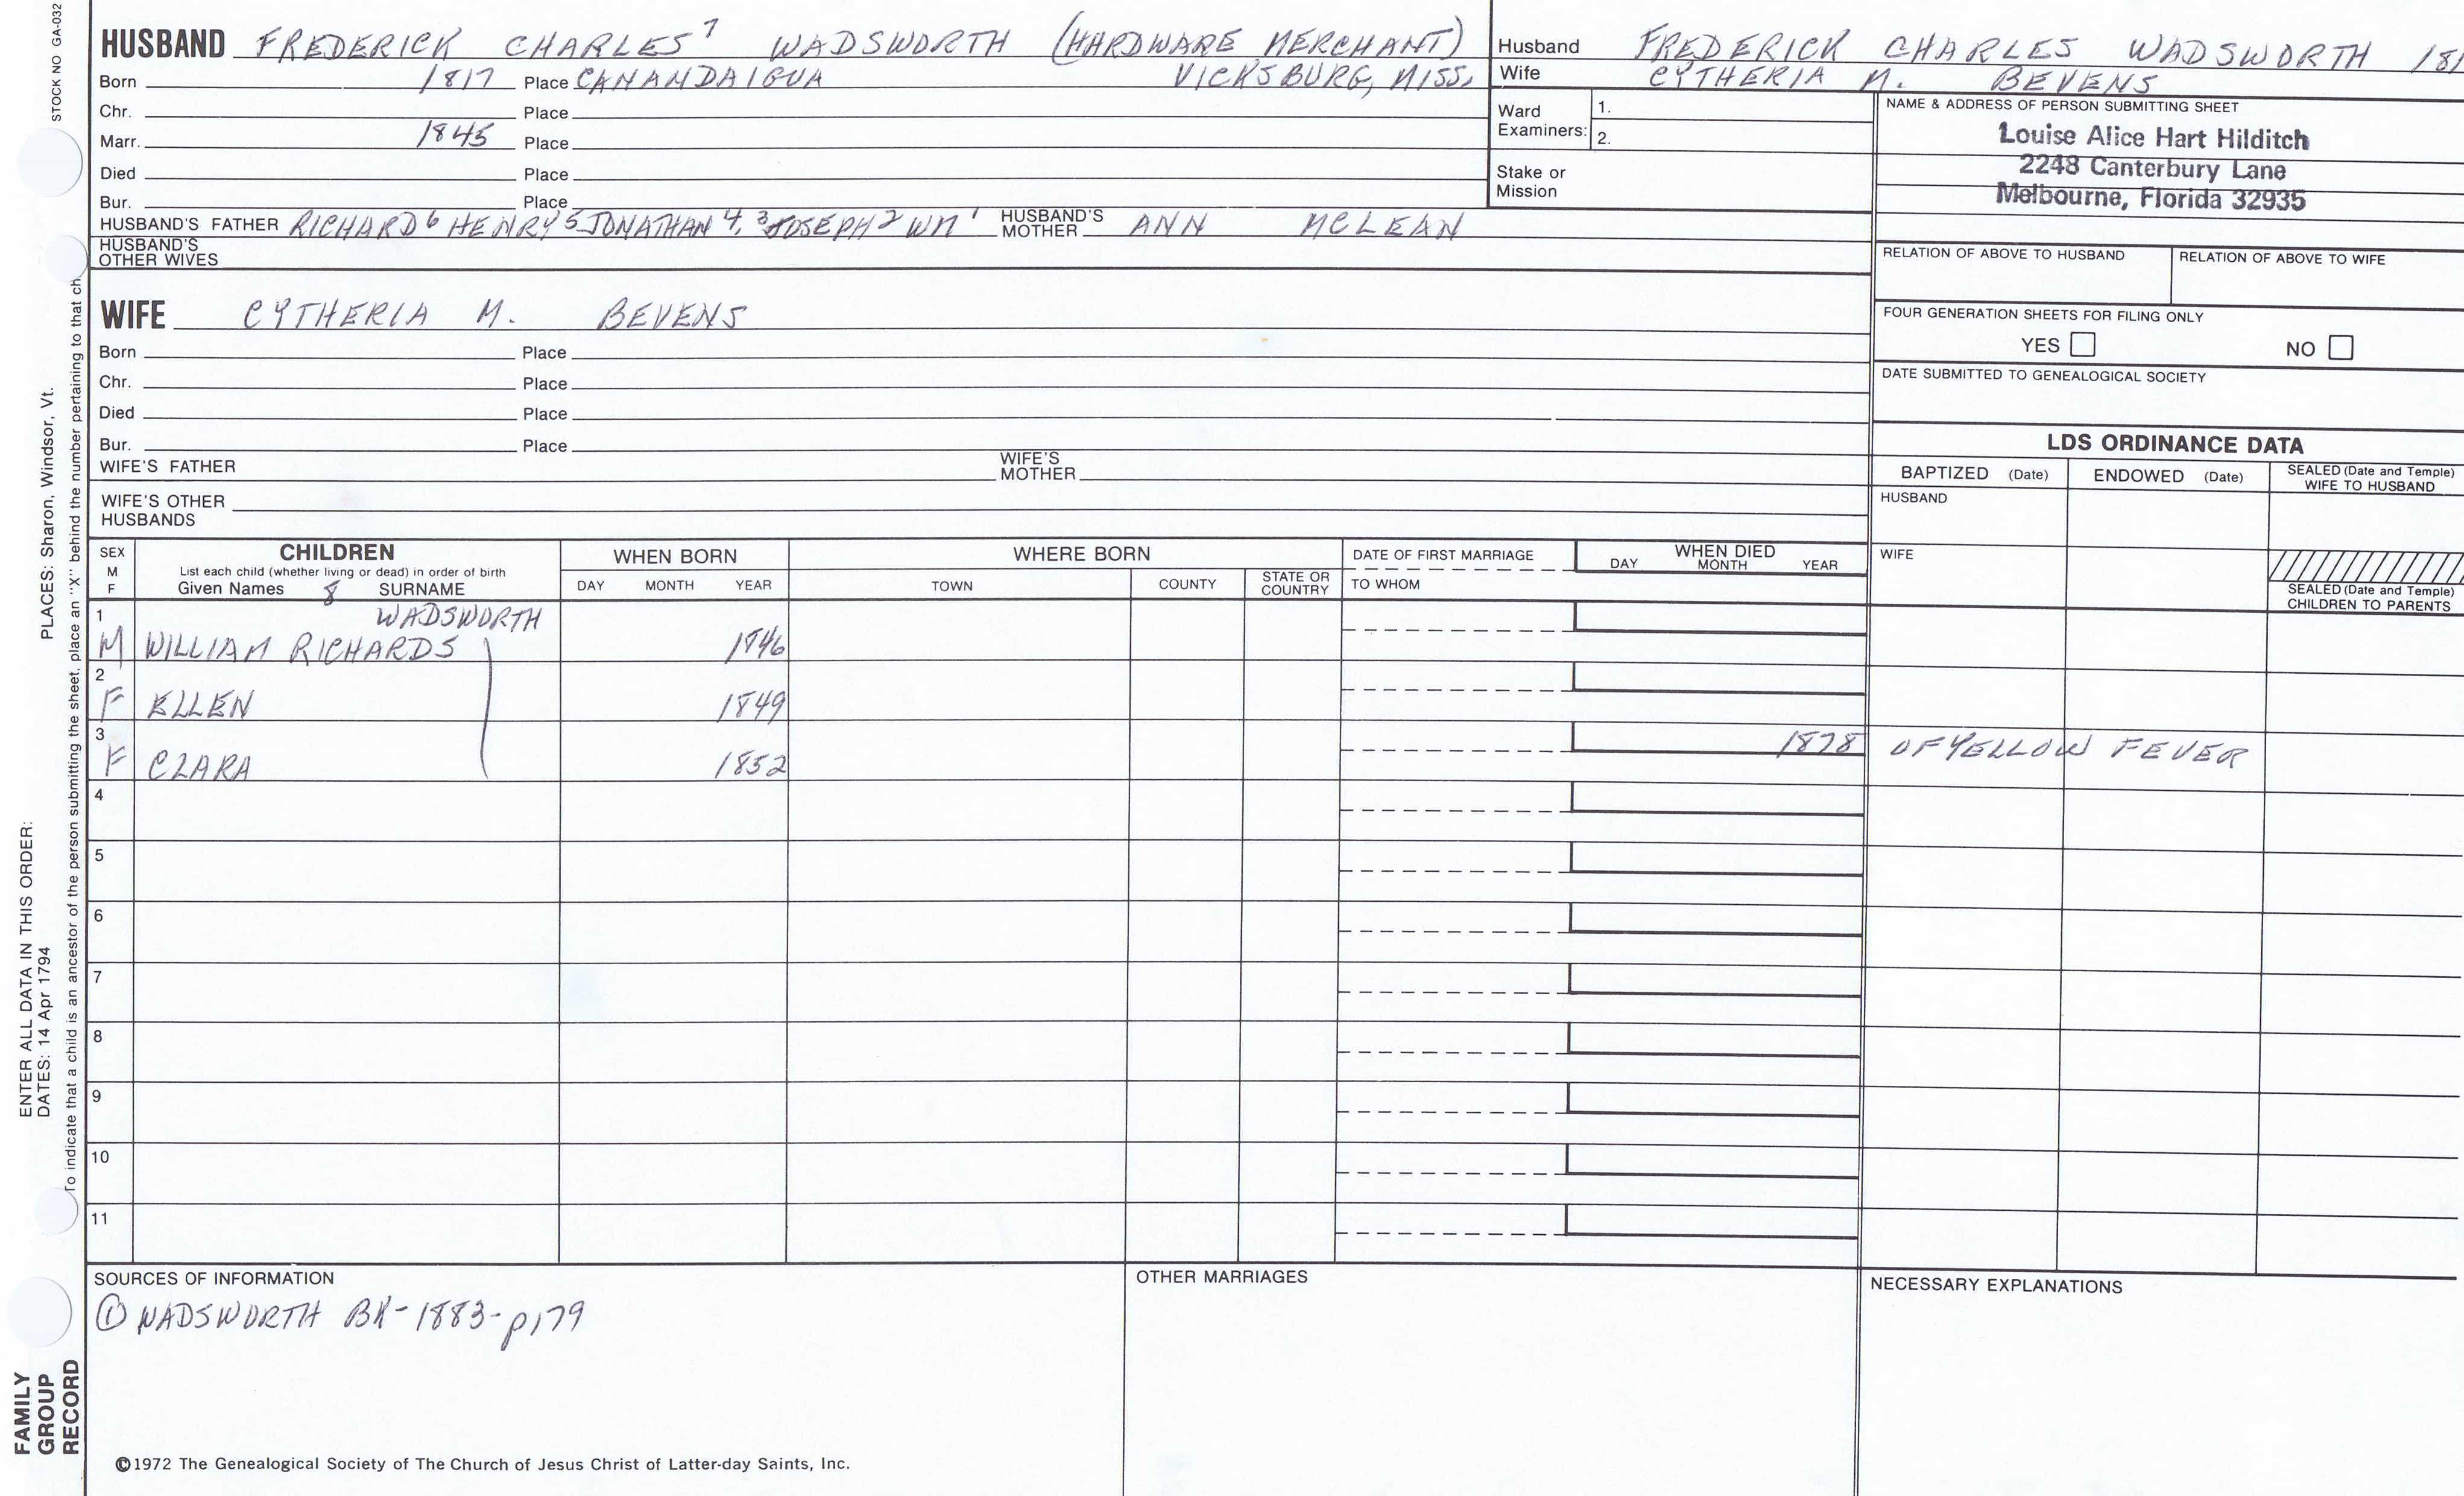 STOCK NO GA-032
HUSBAND FREDERICK CHARLES 7 WADSWORTH (HARDWARE MERCHANT)
Born 1817 Place CANANDAIGUA VICKSBURG, MISS.
Chr. Place
Marr. 1845 Place
Died Place
Bur. Place
HUSBAND'S FATHER RICHARD 6 HENRY 5 JONATHAN 4, 3 JOSEPH 2 WM 1 HUSBAND'S MOTHER ANN MCLEAN
HUSBAND'S OTHER WIVES
WIFE CYTHERIA M. BEVENS
Born Place
Chr. Place
Died Place
Bur. Place
WIFE'S FATHER WIFE'S MOTHER
WIFE'S OTHER HUSBANDS
Husband FREDERICK CHARLES WADSWORTH 181
Wife CYTHERIA M. BEVENS
Ward Examiners: 1.
2.
Stake or Mission
NAME & ADDRESS OF PERSON SUBMITTING SHEET
Louise Alice Hart Hilditch
2248 Canterbury Lane
Melbourne, Florida 32935
RELATION OF ABOVE TO HUSBAND RELATION OF ABOVE TO WIFE
FOUR GENERATION SHEETS FOR FILING ONLY
YES NO
DATE SUBMITTED TO GENEALOGICAL SOCIETY
LDS ORDINANCE DATA
BAPTIZED (Date) ENDOWED (Date) SEALED (Date and Temple) WIFE TO HUSBAND
HUSBAND
WIFE
SEALED (Date and Temple) CHILDREN TO PARENTS
SEX M F
CHILDREN
List each child (whether living or dead) in order of birth
Given Names 8 SURNAME
WHEN BORN
DAY MONTH YEAR
WHERE BORN
TOWN COUNTY STATE OR COUNTRY
DATE OF FIRST MARRIAGE
TO WHOM
WHEN DIED
DAY MONTH YEAR
1 WADSWORTH
M WILLIAM RICHARDS 1846
2
F ELLEN 1849
3 1878 OF YELLOW FEVER
F CLARA 1852
4
5
6
7
8
9
10
11
SOURCES OF INFORMATION
① WADSWORTH BK-1883-p179
OTHER MARRIAGES
NECESSARY EXPLANATIONS
©1972 The Genealogical Society of The Church of Jesus Christ of Latter-day Saints, Inc.
FAMILY
GROUP
RECORD
ENTER ALL DATA IN THIS ORDER:
DATES: 14 Apr 1794 PLACES: Sharon, Windsor, Vt.
To indicate that a child is an ancestor of the person submitting the sheet, place an "X" behind the number pertaining to that ch